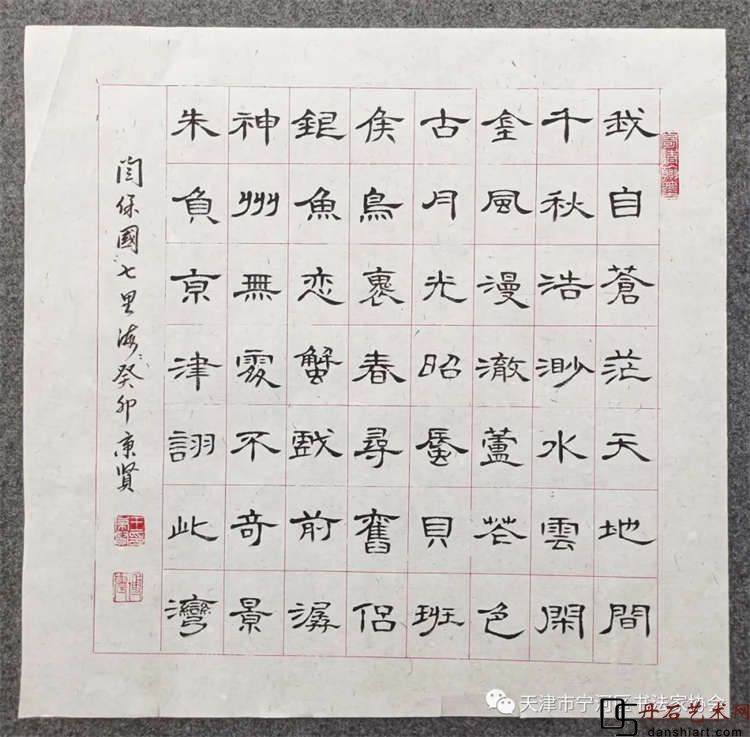 我自蒼茫天地間
千秋浩渺水雲閑
金風漫澈蘆花色
古月光昭蜃貝班
矦鳥裹春尋舊侶
銀魚恋蟹戲前潺
神州無處不奇景
朱負京津詡此灣
閆保國七里海癸卯康贤
天津市宁河区书法家协会
丹石艺术网
danshiart.com